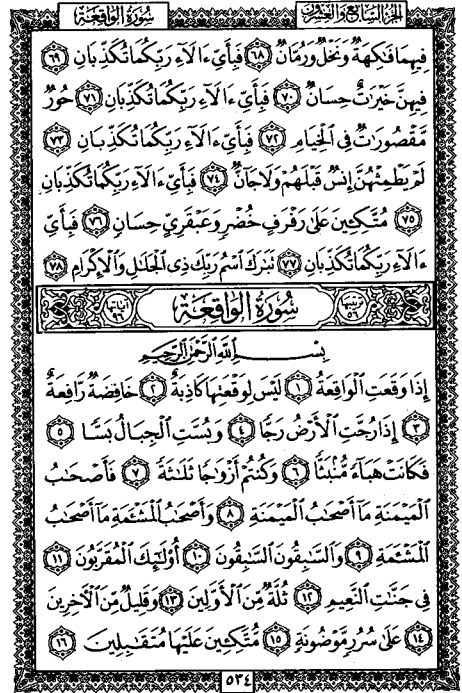 سُورَةُ الوَاقِعَةِ الجُزءُ السَّابِعُ وَالعِشرُونَ
فِيهِمَا فَٰكِهَةٌ وَنَخۡلٌ وَرُمَّانٌ ٦٨ فَبِأَيِّ ءَالَآءِ رَبِّكُمَا تُكَذِّبَانِ ٦٩
فِيهِنَّ خَيۡرَٰتٌ حِسَانٌ ٧٠ فَبِأَيِّ ءَالَآءِ رَبِّكُمَا تُكَذِّبَانِ ٧١ حُورٌ
مَّقۡصُورَٰتٌ فِي ٱلۡخِيَامِ ٧٢ فَبِأَيِّ ءَالَآءِ رَبِّكُمَا تُكَذِّبَانِ ٧٣
لَمۡ يَطۡمِثۡهُنَّ إِنسٌ قَبۡلَهُمۡ وَلَا جَآنٌّ ٧٤ فَبِأَيِّ ءَالَآءِ رَبِّكُمَا تُكَذِّبَانِ
٧٥ مُتَّكِـِٔينَ عَلَىٰ رَفۡرَفٍ خُضۡرٍ وَعَبۡقَرِيٍّ حِسَانٍ ٧٦ فَبِأَيِّ
ءَالَآءِ رَبِّكُمَا تُكَذِّبَانِ ٧٧ تَبَٰرَكَ ٱسۡمُ رَبِّكَ ذِي ٱلۡجَلَٰلِ وَٱلۡإِكۡرَامِ ٧٨
ترتيبها ٥٦ سُورَةُ الوَاقِعَةِ آياتها ٩٦
بِسۡمِ ٱللَّهِ ٱلرَّحۡمَٰنِ ٱلرَّحِيمِ
إِذَا وَقَعَتِ ٱلۡوَاقِعَةُ ١ لَيۡسَ لِوَقۡعَتِهَا كَاذِبَةٌ ٢ خَافِضَةٌ رَّافِعَةٌ
٣ إِذَا رُجَّتِ ٱلۡأَرۡضُ رَجًّا ٤ وَبُسَّتِ ٱلۡجِبَالُ بَسًّا ٥
فَكَانَتۡ هَبَآءً مُّنۢبَثًّا ٦ وَكُنتُمۡ أَزۡوَٰجًا ثَلَٰثَةً ٧ فَأَصۡحَٰبُ
ٱلۡمَيۡمَنَةِ مَآ أَصۡحَٰبُ ٱلۡمَيۡمَنَةِ ٨ وَأَصۡحَٰبُ ٱلۡمَشۡـَٔمَةِ مَآ أَصۡحَٰبُ
ٱلۡمَشۡـَٔمَةِ ٩ وَٱلسَّٰبِقُونَ ٱلسَّٰبِقُونَ ١٠ أُوْلَٰٓئِكَ ٱلۡمُقَرَّبُونَ ١١
فِي جَنَّٰتِ ٱلنَّعِيمِ ١٢ ثُلَّةٌ مِّنَ ٱلۡأَوَّلِينَ ١٣ وَقَلِيلٌ مِّنَ ٱلۡأٓخِرِينَ
١٤ عَلَىٰ سُرُرٍ مَّوۡضُونَةٍ ١٥ مُّتَّكِـِٔينَ عَلَيۡهَا مُتَقَٰبِلِينَ ١٦
٥٣٤